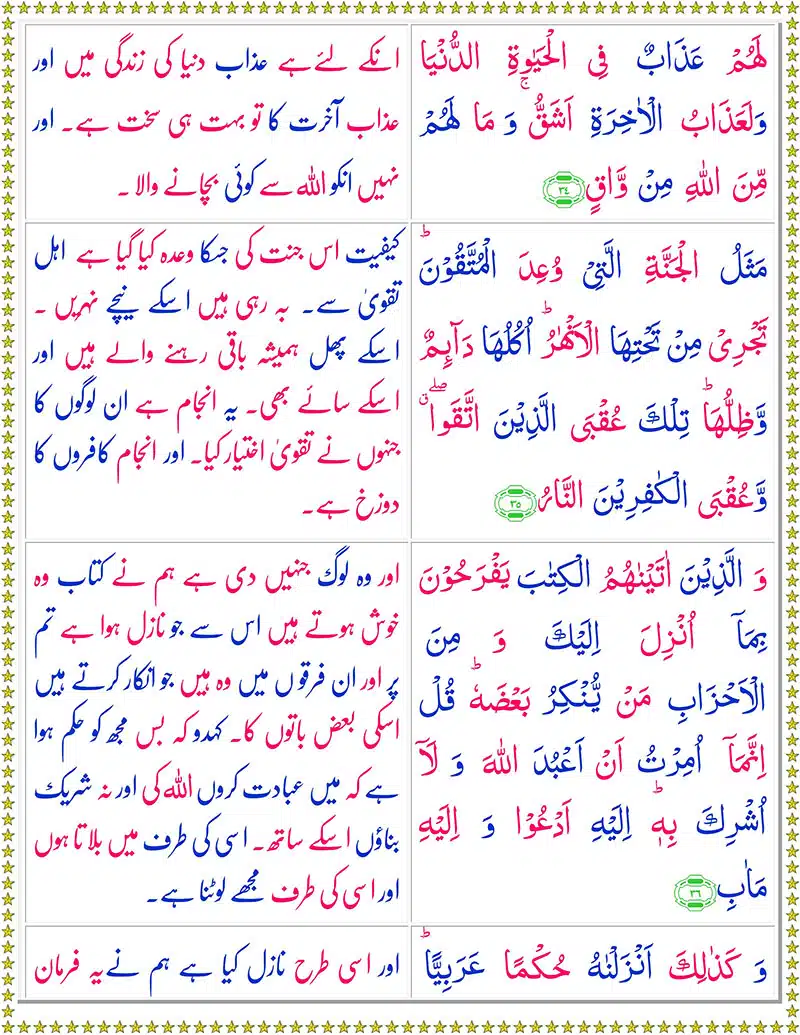 لَهُمْ عَذَابٌ فِی الْحَیٰوةِ الدُّنْیَا
وَلَعَذَابُ الْاٰخِرَةِ اَشَقُّ ۚ وَ مَا لَهُمْ
مِّنَ اللّٰهِ مِنْ وَّاقٍ ﴿۳۴﴾
انکے لئے ہے عذاب دنیا کی زندگی میں اور
عذاب آخرت کا تو بہت ہی سخت ہے۔ اور
نہیں انکو اللہ سے کوئی بچانے والا ۔
مَثَلُ الْجَنَّةِ الَّتِیْ وُعِدَ الْمُتَّقُوْنَ ؕ
تَجْرِیْ مِنْ تَحْتِهَا الْاَنْهٰرُ ؕ اُكُلُهَا دَآىِٕمٌ
وَّظِلُّهَا ؕ تِلْكَ عُقْبَی الَّذِیْنَ اتَّقَوْا ۖۗ
وَّعُقْبَی الْكٰفِرِیْنَ النَّارُ ﴿۳۵﴾
کیفیت اس جنت کی جسکا وعدہ کیا گیا ہے اہل
تقویٰ سے۔ بہ رہی ہیں اسکے نیچے نہریں ۔
اسکے پھل ہمیشہ باقی رہنے والے ہیں اور
اسکے سائے بھی۔ یہ انجام ہے ان لوگوں کا
جنہوں نے تقویٰ اختیار کیا۔ اور انجام کافروں کا
دوزخ ہے۔
وَ الَّذِیْنَ اٰتَیْنٰهُمُ الْكِتٰبَ یَفْرَحُوْنَ
بِمَاۤ اُنْزِلَ اِلَیْكَ وَ مِنَ
الْاَحْزَابِ مَنْ یُّنْكِرُ بَعْضَهٗ ؕ قُلْ
اِنَّمَاۤ اُمِرْتُ اَنْ اَعْبُدَ اللّٰهَ وَ لَاۤ
اُشْرِكَ بِهٖ ؕ اِلَیْهِ اَدْعُوْا وَ اِلَیْهِ
مَاٰبِ ﴿۳۶﴾
اور وہ لوگ جنہیں دی ہے ہم نے کتاب وہ
خوش ہوتے ہیں اس سے جو نازل ہوا ہے تم
پر اور ان فرقوں میں وہ ہیں جو انکار کرتے ہیں
اسکی بعض باتوں کا۔ کہدو کہ بس مجھ کو حکم ہوا
ہے کہ میں عبادت کروں اللہ کی اور نہ شریک
بناؤں اسکے ساتھ۔ اسی کی طرف میں بلاتا ہوں
اور اسی کی طرف مجھے لوٹنا ہے۔
وَ كَذٰلِكَ اَنْزَلْنٰهُ حُكْمًا عَرَبِیًّا ؕ
اور اسی طرح نازل کیا ہے ہم نے یہ فرمان